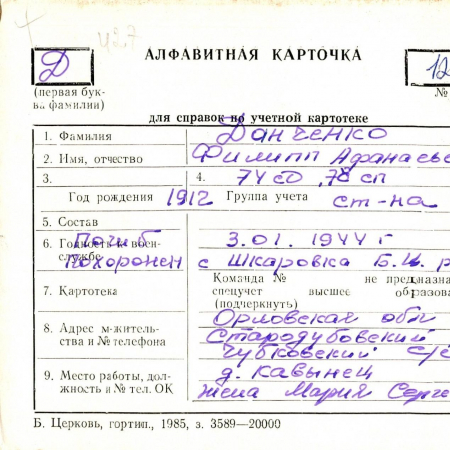 427
АЛФАВИТНАЯ КАРТОЧКА
Д
12
(первая бук-
ва фамилии)
№
для справок по учетной картотеке
1. Фамилия Данченко
2. Имя, отчество Филипп Афанасье
3. 4. 74 сд, 78 сп
Год рождения 1912 Группа учета ст-на
5. Состав
6. Годность к воен-
службе
Погиб 3.01.1944 г
Похоронен с Шкаровка Б.Ц. р
7. Картотека
Команда № не предназна
спецучет высшее образова
(подчеркнуть)
8. Адрес м-житель-
ства и № телефона
Орловская обл
Стародубовский
Чубковский с/с
9. Место работы, дол-
жность и № тел. ОК
д. Кавынец
жена Мария Серге
Б. Церковь, гортип., 1985, з. 3589—20000